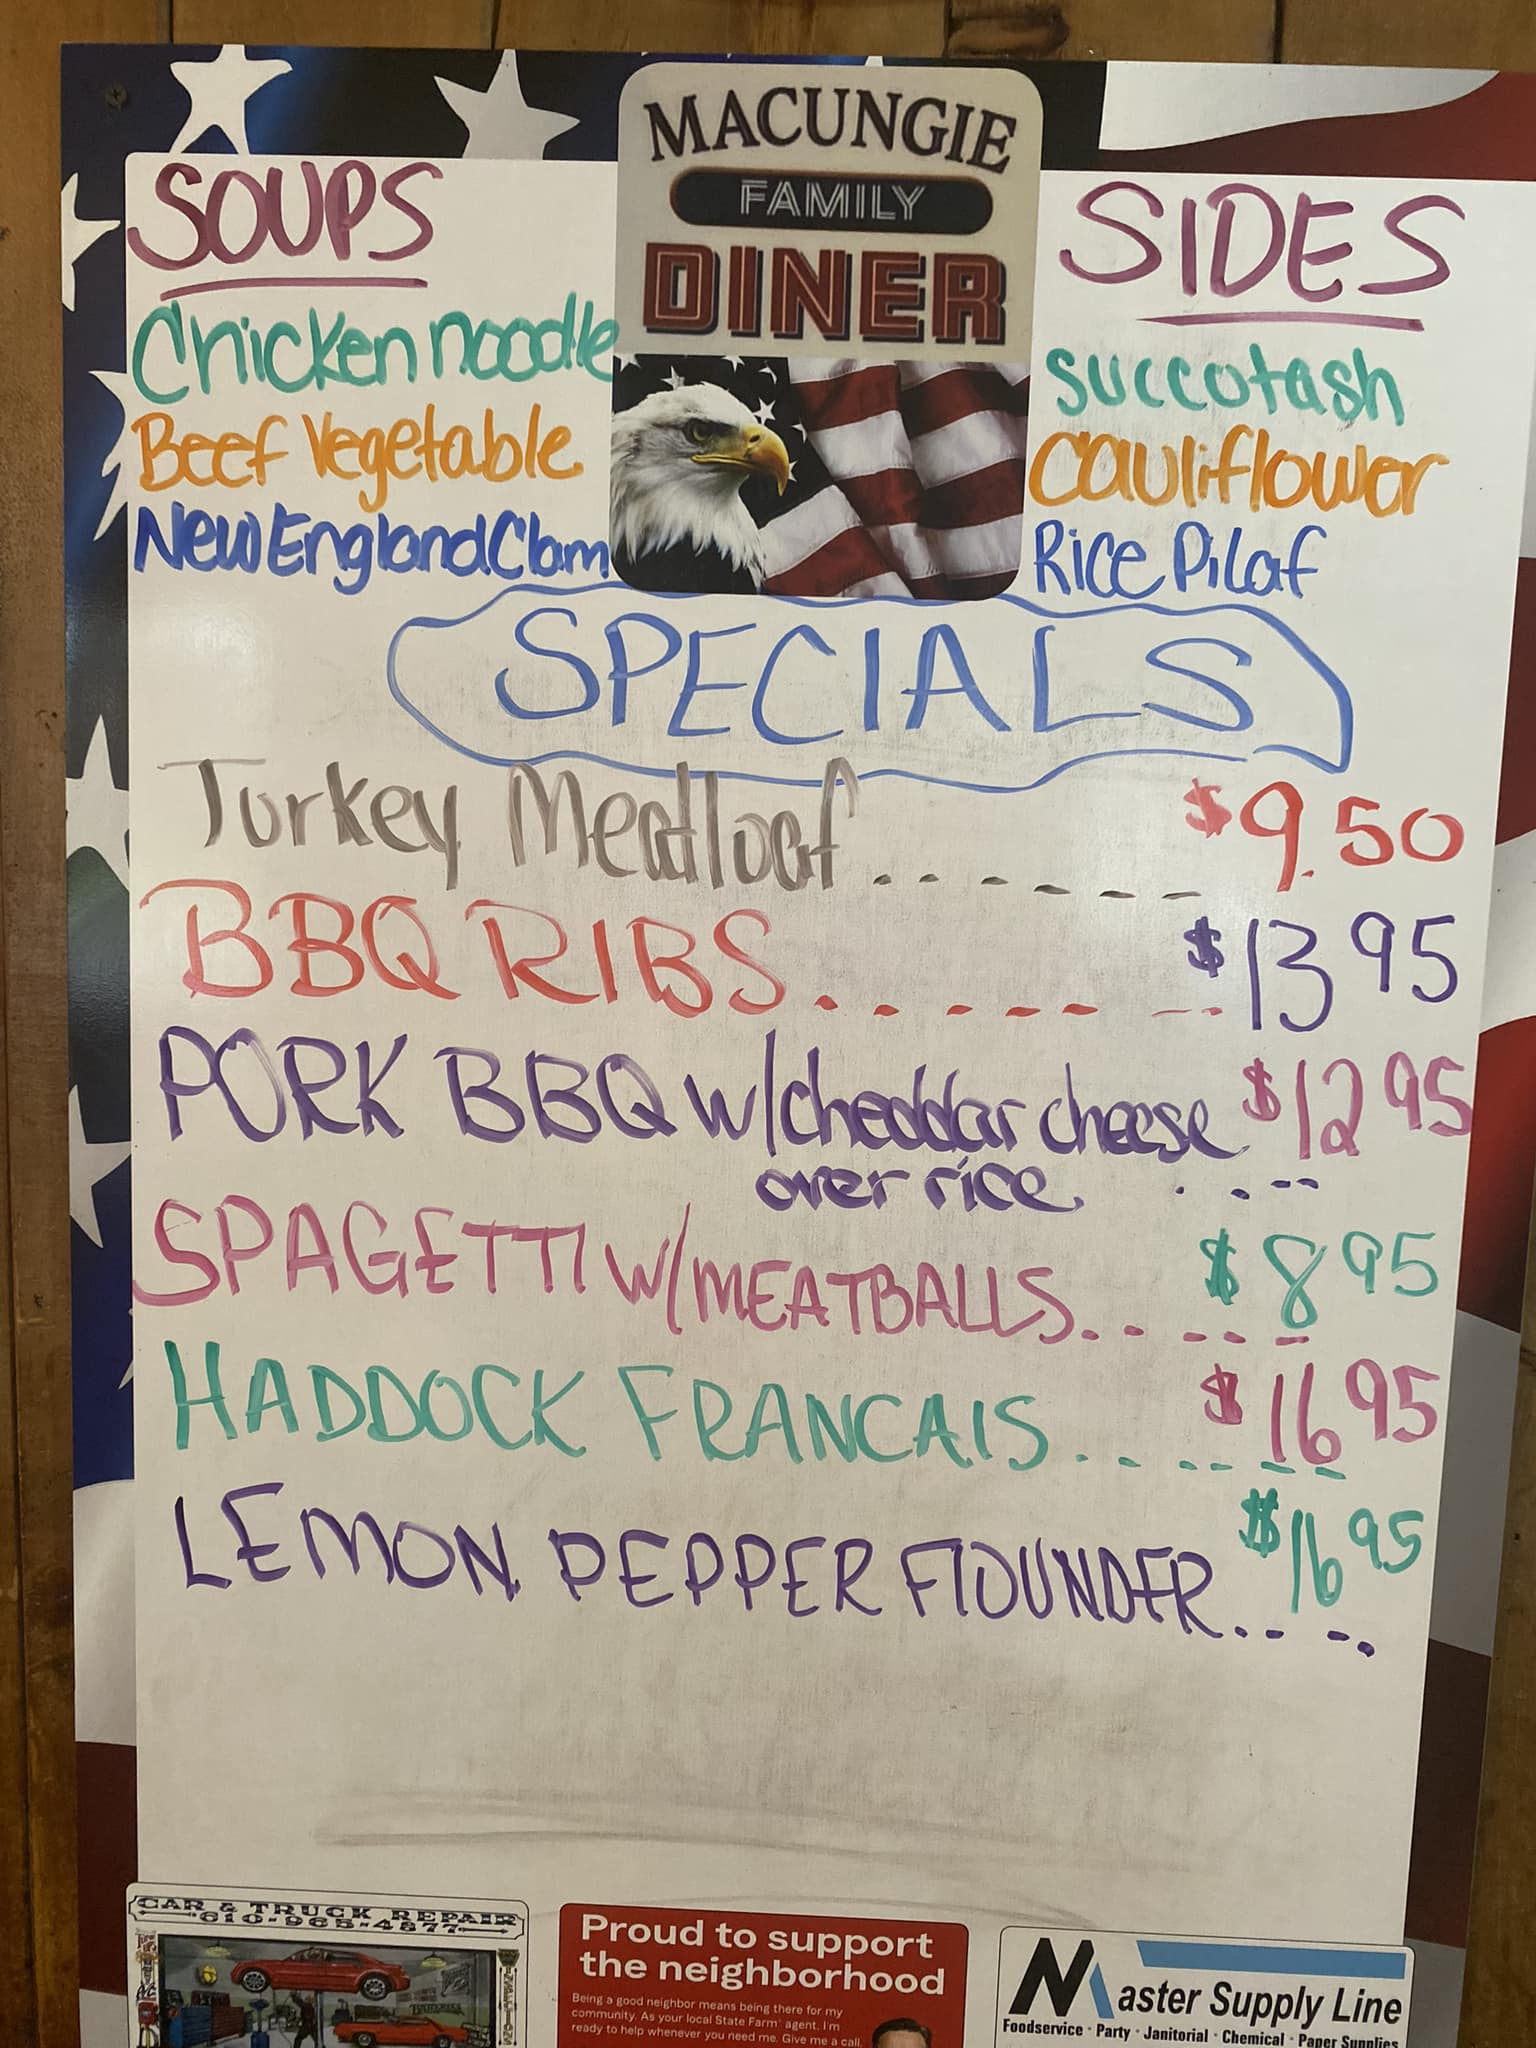 MACUNGIE
FAMILY
DINER
SOUPS
Chicken noodle
Beef Vegetable
New England Clam
SIDES
Succotash
Cauliflower
Rice Pilaf
SPECIALS
Turkey Meatloaf....... $9.50
BBQ RIBS....... $13 95
PORK BBQ w/cheddar cheese $12 95
over rice ....
SPAGETTI W/MEATBALLS..... $8 95
HADDOCK FRANCAIS...... $16 95
LEMON PEPPER FLOUNDER.... $16 95
CAR & TRUCK REPAIR
610-965-4877
Proud to support
the neighborhood
Being a good neighbor means being there for my
community. As your local State Farm® agent, I'm
ready to help whenever you need me. Give me a call.
Master Supply Line
Foodservice · Party · Janitorial · Chemical · Paper Supplies